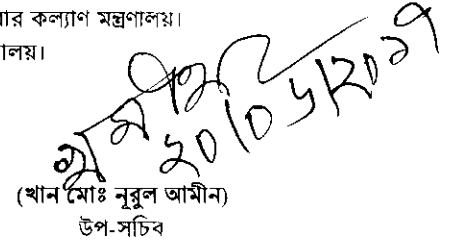 ার কল্যাণ মন্ত্রণালয়।
ালয়।
২০।০৬।২০১৭
(খান মোঃ নূরুল আমীন)
উপ-সচিব